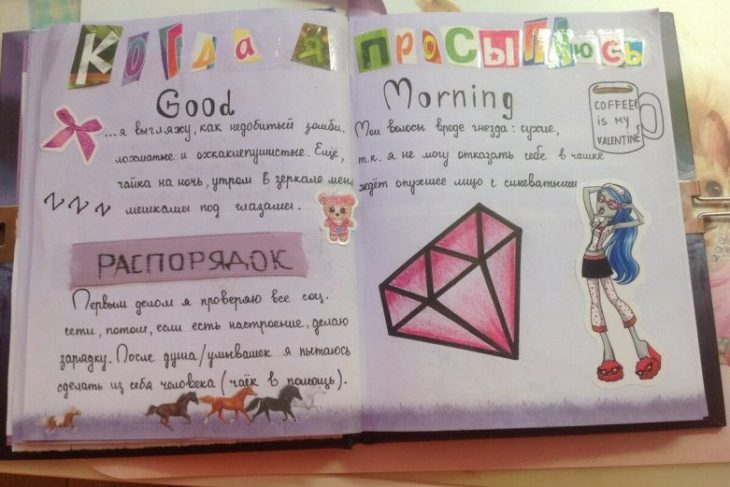 Когда я просыпаюсь
Good Morning
...я выгляжу, как недобитый зомби. Мои волосы вроде гнезда: сухие,
лохматые и охкакиепушистые. Ещё, т.к. я не могу отказать себе в чашке
чайка на ночь, утром в зеркале меня ждёт опухшее лицо с синеватыми
мешками под глазами.
COFFEE
is MY
VALENTINE
Z Z Z
РАСПОРЯДОК
Первым делом я проверяю все соц.
сети, потом, если есть настроение, делаю
зарядку. После душа/умывашек я пытаюсь
сделать из себя человека (чаёк в помощь).